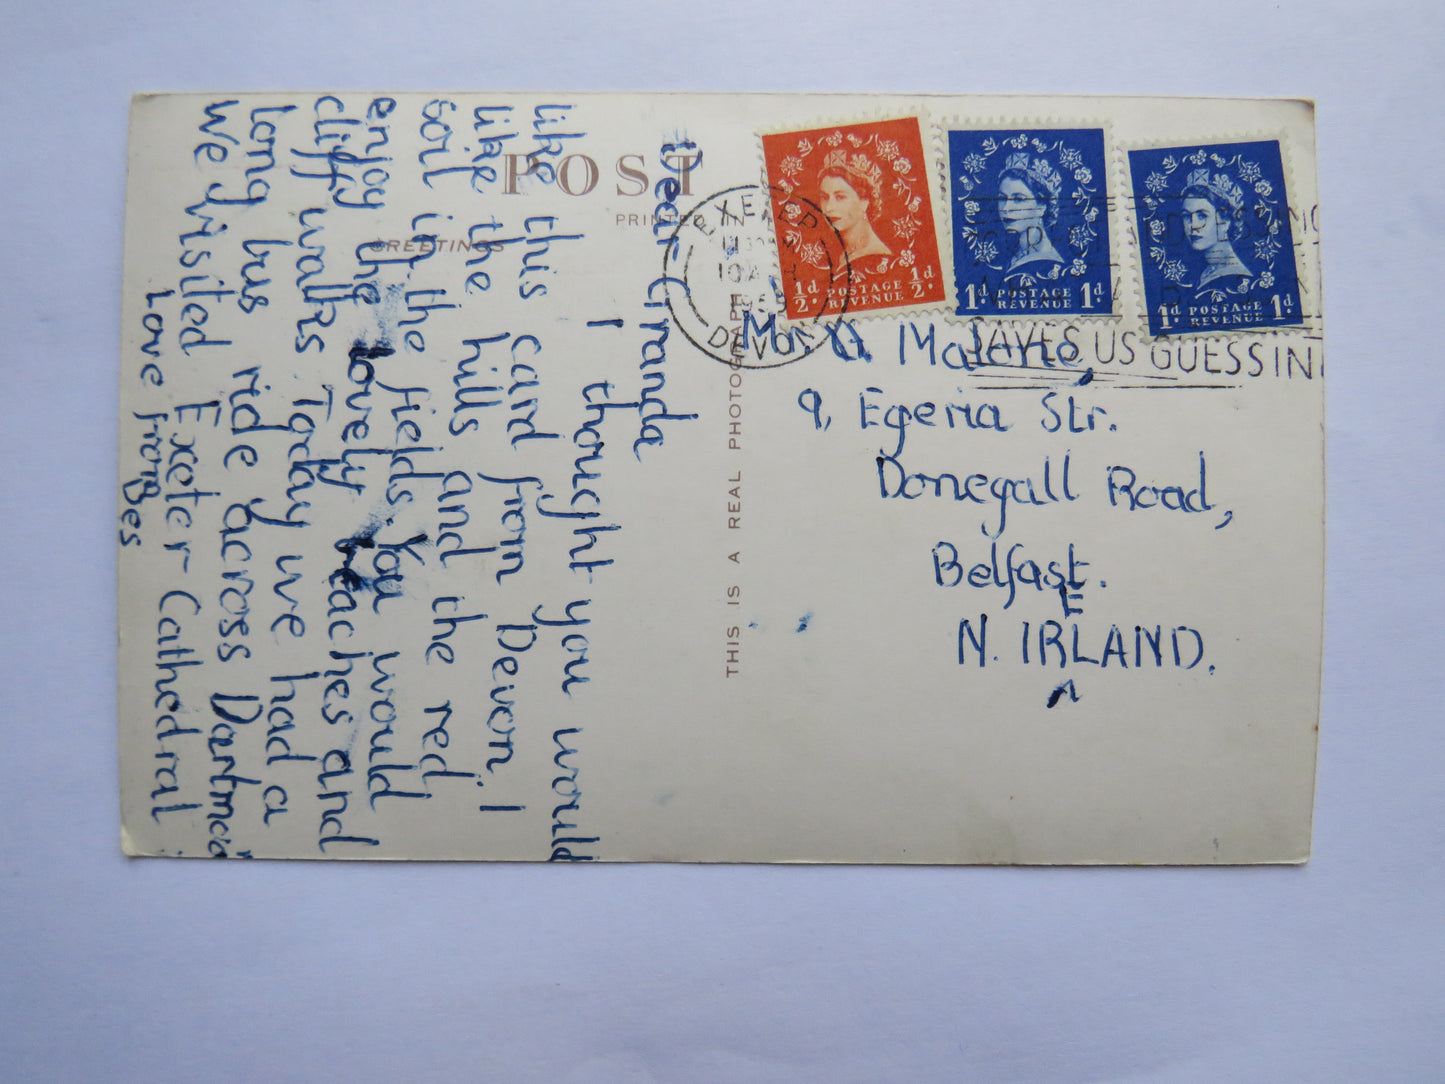 POST
PRINTED IN
GREETINGS
THIS IS A REAL PHOTOGRAPH
Dear Granda
I thought you would
like this card from Devon. I
like the hills and the red
soil in the fields. You would
enjoy the lovely beaches and
cliff walks. Today we had a
long bus ride across Dartmoo
We visited Exeter Cathedral
Love from
Bes
EXETER
DEVON
1/2d POSTAGE REVENUE 1/2d
1d POSTAGE REVENUE 1d
1d POSTAGE REVENUE 1d
CORRECT ADDRESSING
SAVES US GUESSIN
Mr. Malone,
9, Egeria Str.
Donegall Road,
Belfast.
E
N. IRLAND.
^